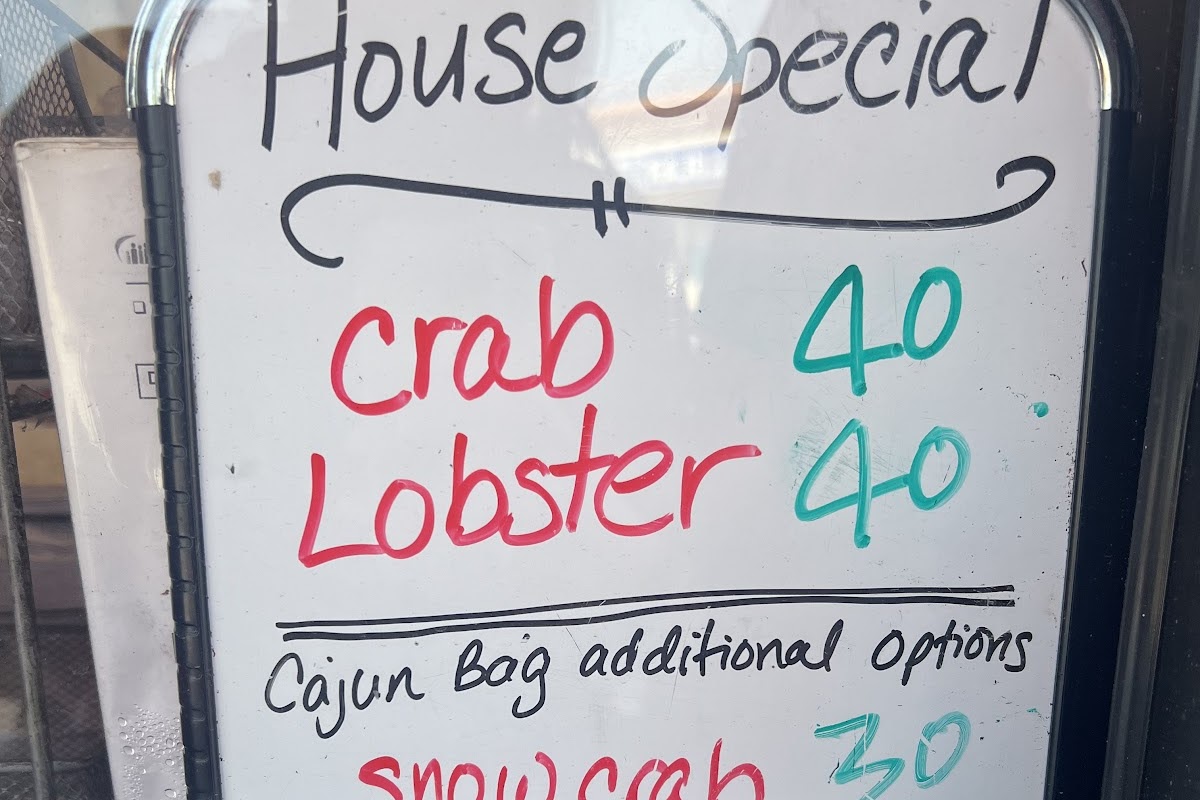 House Special
Crab 40
Lobster 40
Cajun Bag additional options
Snow crab 30